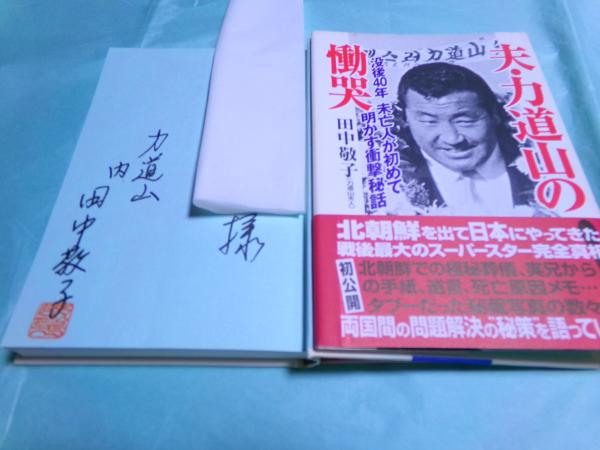 様
力道山
内 田中敬子
夫・力道山の
慟哭
没後40年 未亡人が初めて
明かす衝撃秘話
田中敬子
(力道山夫人)
北朝鮮を出て日本にやってきた
戦後最大のスーパースター完全真相
初公開
北朝鮮での極秘葬儀、実兄から
の手紙、遺言、死亡原因メモ…
タブーだった秘蔵写真の数々
両国間の問題解決"秘策"を語ってい